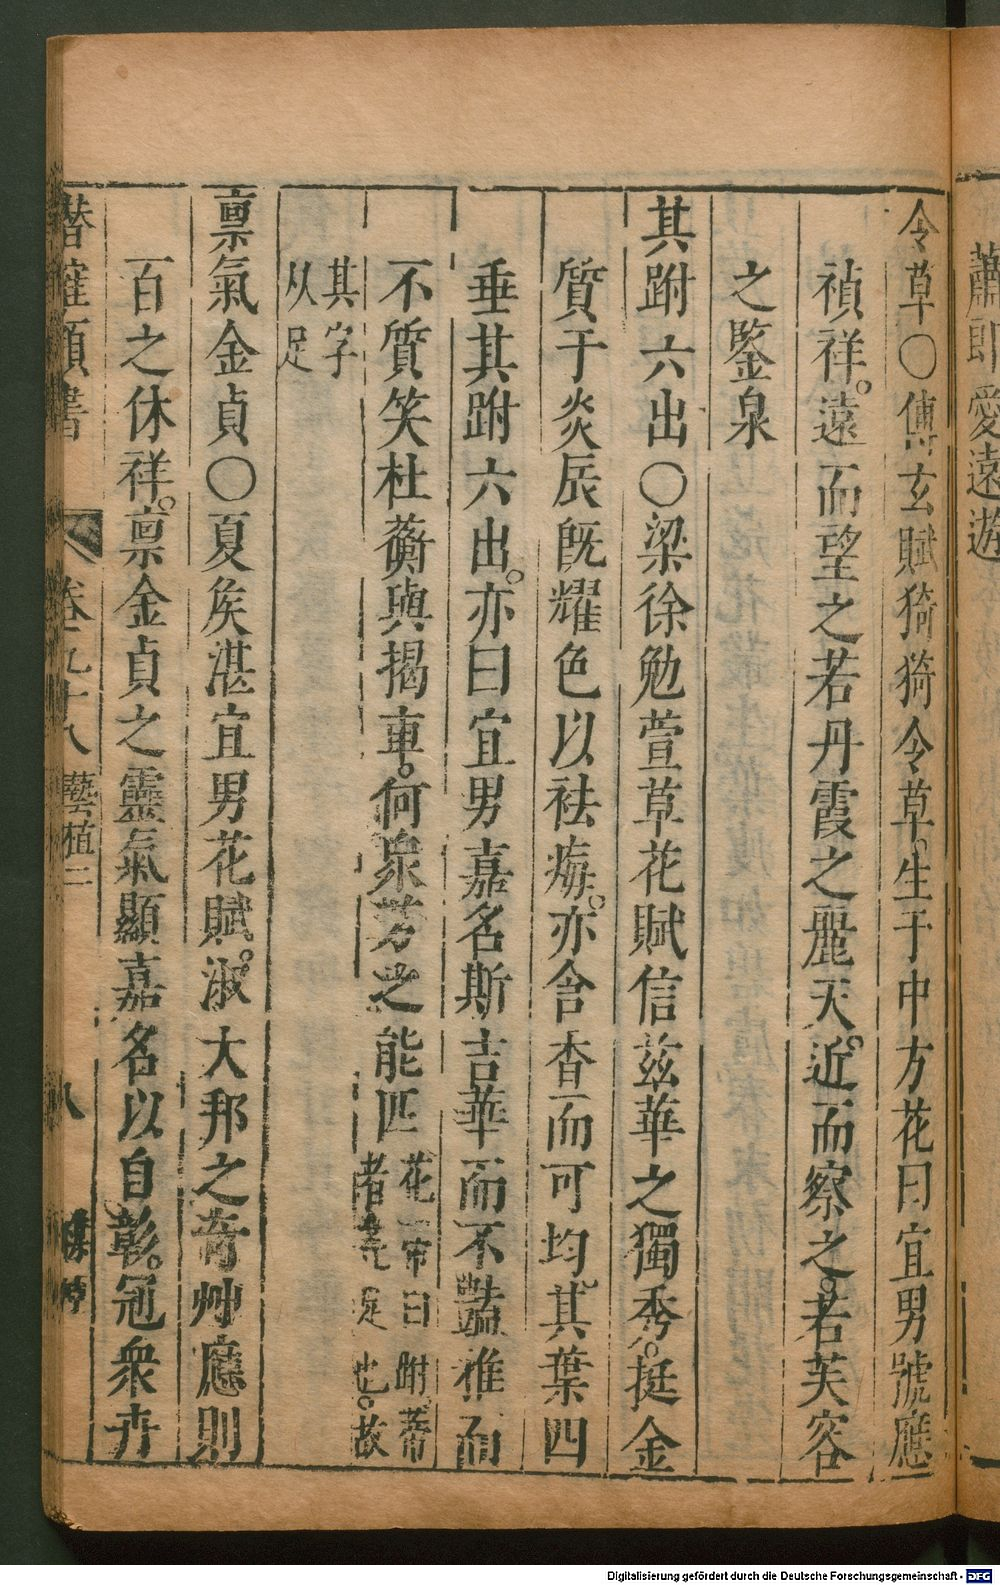 蕭郎愛遠遊
令草〇傅玄賦猗猗令草生于中方花曰宜男號應
禎祥。遠而望之若丹霞之麗天。近而察之。若芙容
之鑒泉
其跗六出〇梁徐勉萱草花賦信茲華之獨秀。挺金
質于炎辰旣耀色以祛痗。亦含香而可均。其葉四
垂其跗六出。亦曰宜男嘉名斯吉華而不豔雅而
不質笑杜蘅與揭車。何衆芳之能匹花下曰跗。蒂
者足也。故
其字
从足
禀氣金貞〇夏矦湛宜男花賦。淑大邦之奇艸應則
百之休祥。禀金貞之靈氣顯嘉名以自彰。冠衆卉
潛確類書 卷九十八 藝植二 八
Digitalisierung gefördert durch die Deutsche Forschungsgemeinschaft - DFG